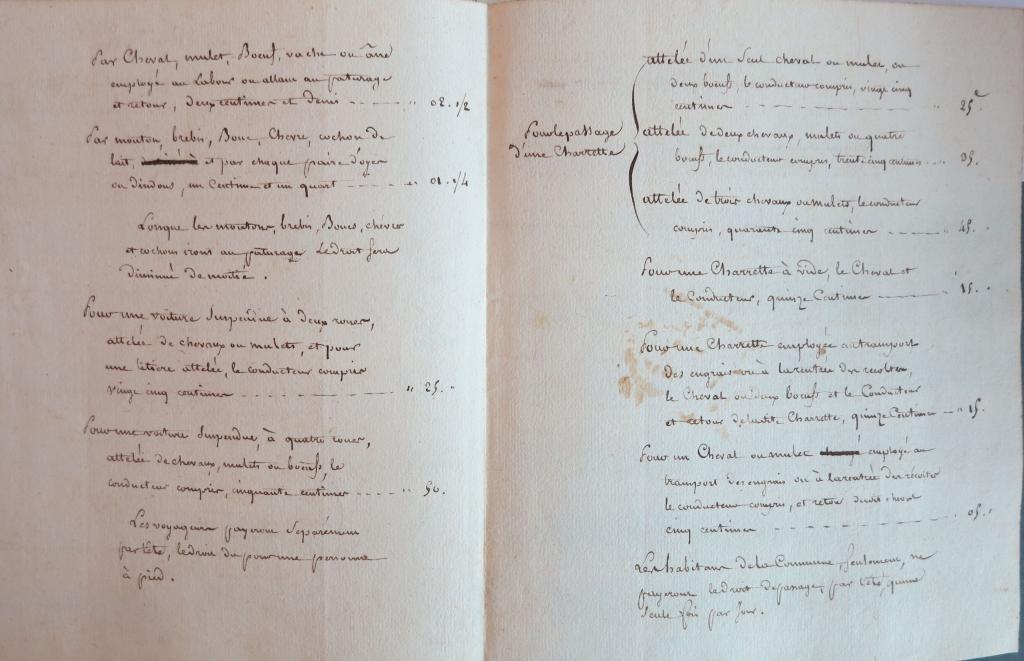 Par Cheval, mulet, Boeuf, vache ou âne
employé au Labour ou allant au pâturage
et retour, deux centimes et demi - - - - - " 02. 1/2
Par mouton, brebis, Bouc, Chevre, cochon de
lait, et par chaque paire d'oyes
ou dindons, un Centime et un quart - - - - - " 01. 1/4
Lorsque les moutons, brebis, Boucs, chévres
et cochons iront au pâturage Le droit sera
diminué de moitié.
Pour une voiture suspendue à deux roues,
attelée de chevaux ou mulets, et pour
une litière attelée, le conducteur compris
vingt cinq centimes - - - - - - - - - - " 25. "
Pour une voiture suspendue, à quatre roues,
attelée de chevaux, mulets ou boeufs, le
conducteur compris, cinquante centimes - - - - - " 50.
Les voyageurs payeront séparément
par tête, le droit du pour une personne
à pied.
Pour le passage
d'une Charrette
attelée d'un seul cheval ou mulet, ou
deux boeufs, le conducteur compris, vingt cinq
centimes - - - - - - - - - - - " 25.c
attelée de deux chevaux, mulets ou quatre
boeufs, le conducteur compris, trente cinq centimes - - - 35.
attelée de trois chevaux ou mulets, le conducteur
compris, quarante cinq centimes - - - - - - " 45.
Pour une Charrette à vide, le Cheval et
le Conducteur, quinze Centimes - - - - - " 15. "
Pour une Charrette employée au transport
des engrais ou à la rentrée des récoltes,
le Cheval ou deux boeufs et le Conducteur
et retour de ladite Charrette, quinze Centimes - - " 15.
Pour un Cheval ou mulet employé au
transport des engrais ou à la rentrée des récoltes
le conducteur compris, et retour dudit cheval
cinq centimes - - - - - - - - - - 05. "
Les habitans de la Commune, seulement, ne
payeront le droit de passage, par tête, qu'une
seule fois par jour.